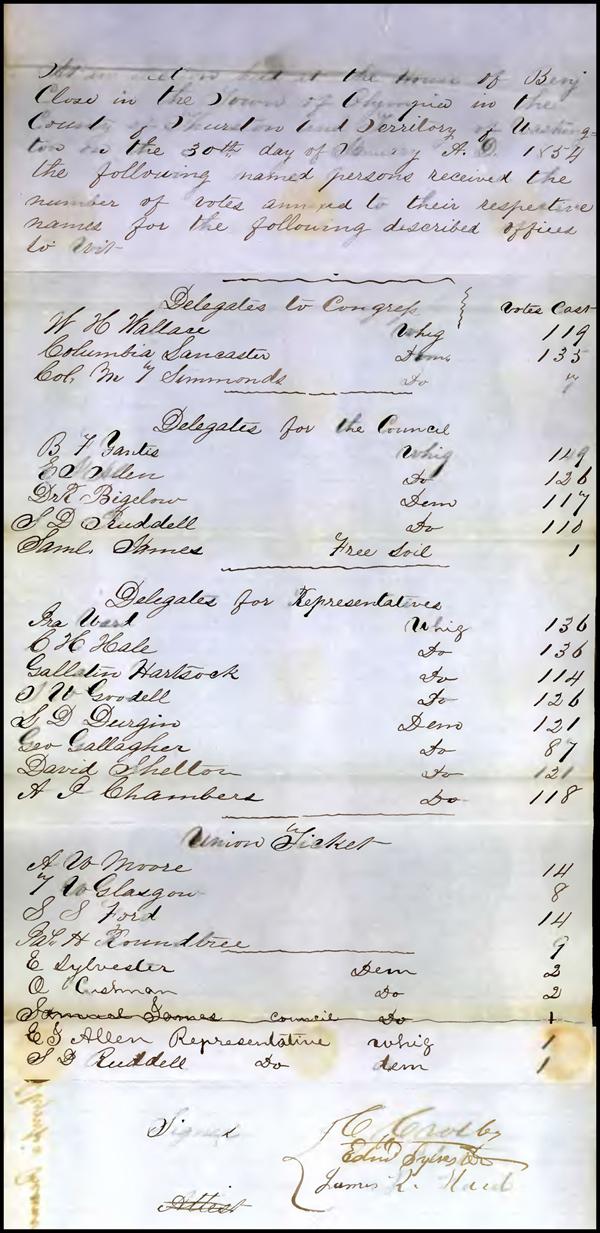 At an election held at the House of Benj
Close in the Town of Olympia in the
County of Thurston and Territory of Washing=
ton on the 30th day of January A. D. 1854
the following named persons received the
number of votes annexed to their respective
names for the following described offices
to wit
Delegates to Congress Votes Cast
W H Wallace Whig 119
Columbia Lancaster Dem 135
Col. M T Simmonds Do 7
Delegates for the Council
B F Yantis Whig 149
E Allen Do 126
Dr Bigelow Dem 117
S D Ruddell Do 110
Saml. James Free Soil 1
Delegates for Representatives
Ira Ward Whig 136
C H Hale Do 136
Gallatin Hartsock Do 114
J W Goodell Do 126
L D Durgin Dem 121
Geo Gallagher Do 87
David Shelton Do 121
A J Chambers Do 118
Union Ticket
A W Moore 14
T W Glasgow 8
S S Ford 14
Jas. H Roundtree 9
E Sylvester Dem 2
O Cushman Do 2
Samuel James council Do 1
E J Allen Representative Whig 1
S D Ruddell Do dem 1
Signed C Crosby
Edmd Sylvester
James
Attest